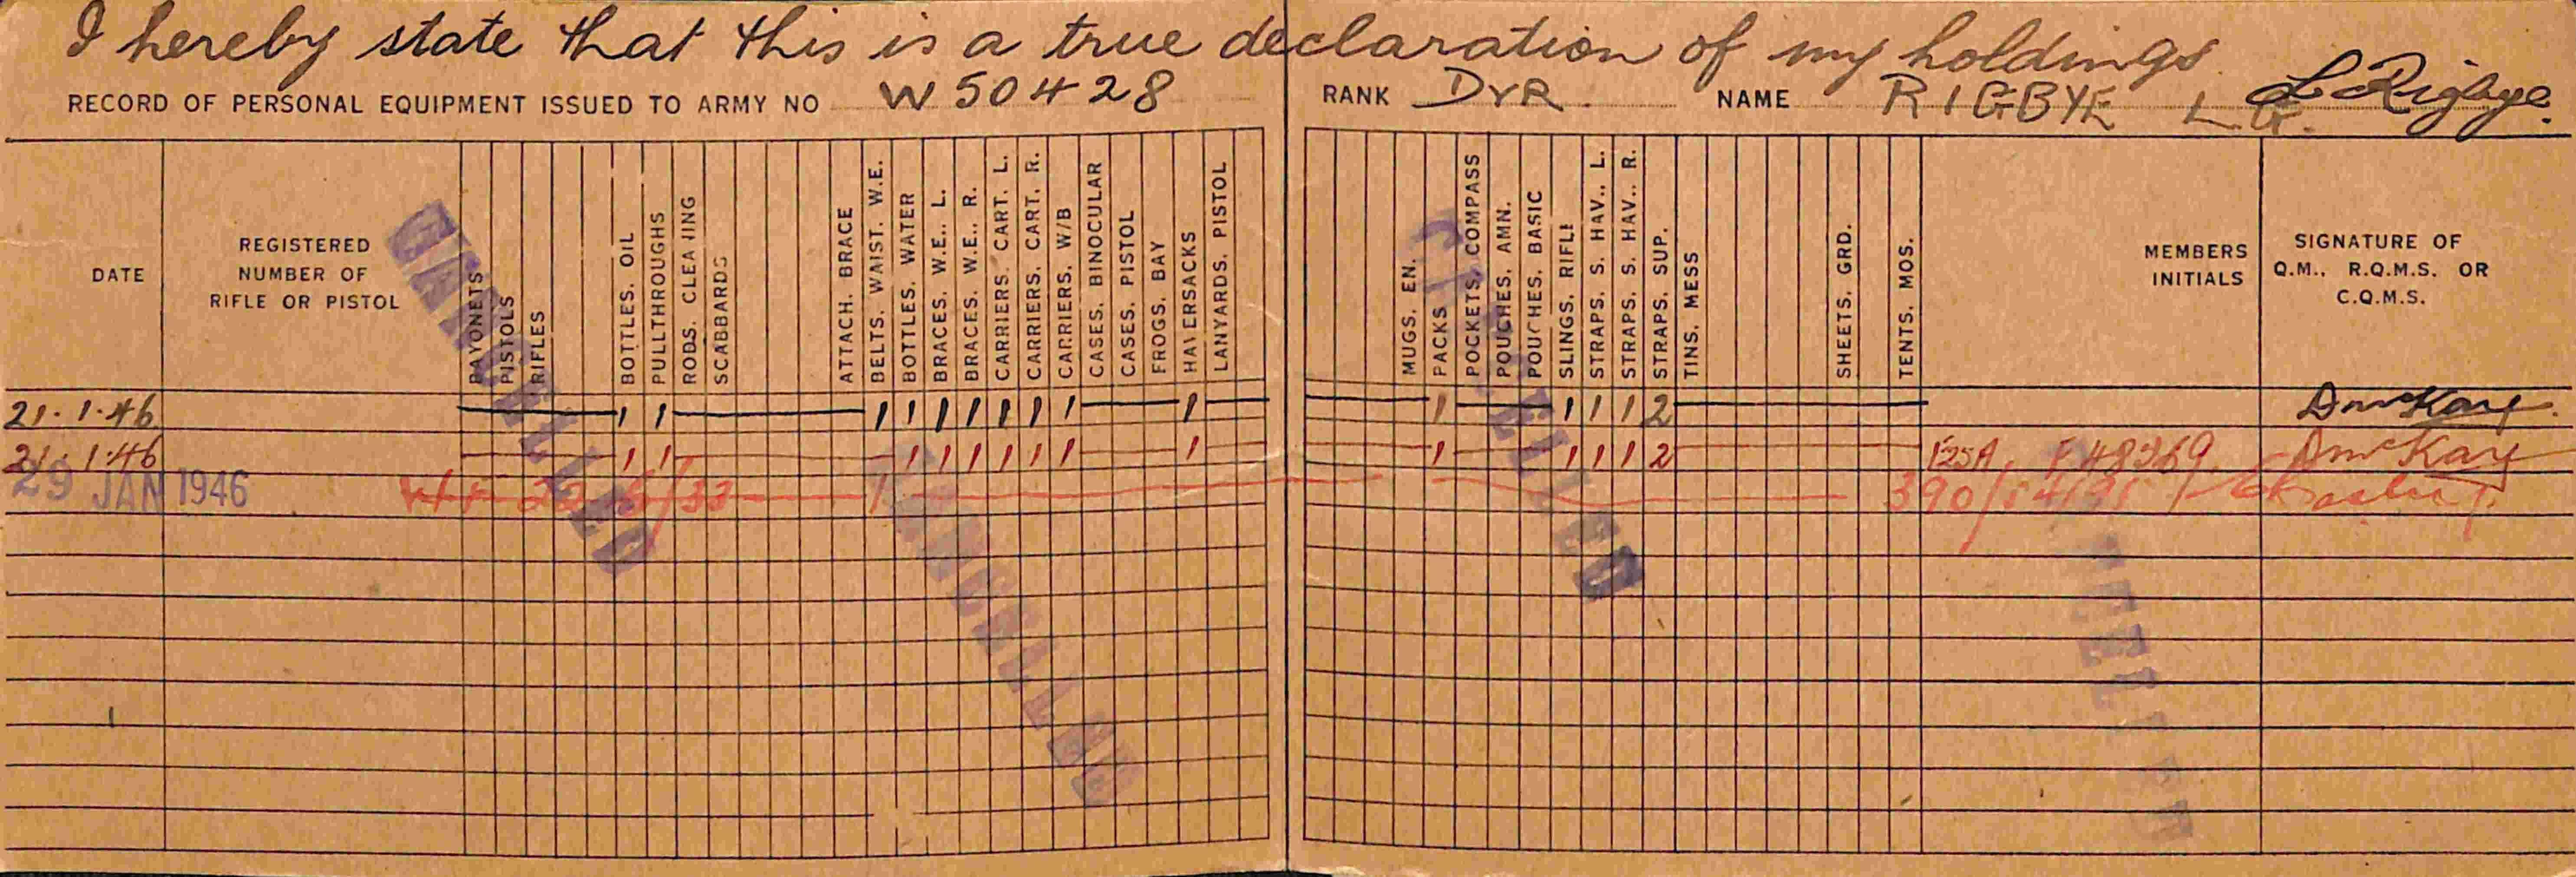 I hereby state that this is a true declaration of my holdings
RECORD OF PERSONAL EQUIPMENT ISSUED TO ARMY NO W50428 RANK DVR. NAME RIGBYE L.G. L Rigbye.
DATE
REGISTERED
NUMBER OF
RIFLE OR PISTOL
BAYONETS
PISTOLS
RIFLES
BOTTLES. OIL
PULLTHROUGHS
RODS. CLEANING
SCABBARDS
ATTACH. BRACE
BELTS. WAIST. W.E.
BOTTLES. WATER
BRACES. W.E.. L.
BRACES. W.E.. R.
CARRIERS. CART. L.
CARRIERS. CART. R.
CARRIERS. W/B
CASES. BINOCULAR
CASES. PISTOL
FROGS. BAY
HAVERSACKS
LANYARDS. PISTOL
MUGS. EN.
PACKS
POCKETS. COMPASS
POUCHES. AMN.
POUCHES. BASIC
SLINGS. RIFLE
STRAPS. S. HAV.. L.
STRAPS. S. HAV.. R.
STRAPS. SUP.
TINS. MESS
SHEETS. GRD.
TENTS. MOS.
MEMBERS
INITIALS
SIGNATURE OF
Q.M.. R.Q.M.S. OR
C.Q.M.S.
21.1.46 1 1 1 1 1 1 1 1 1 1 1 1 1 1 2 DMcKay.
21.1.46 1 1 1 1 1 1 1 1 1 1 1 1 1 2 DMcKay
29 JAN 1946 1
CANCELLED
CANCELLED
CANCELLED
CANCELLED